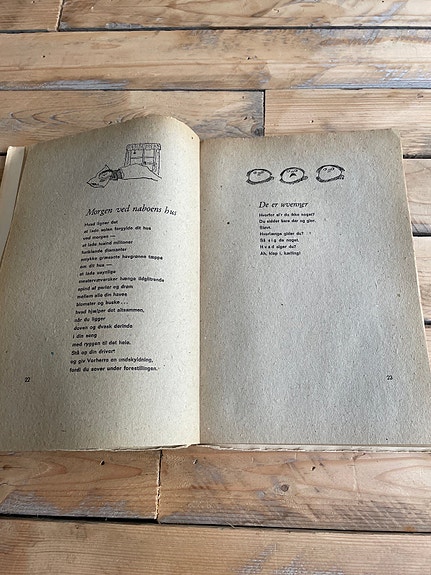 Morgen ved naboens hus
Hvad ligner det
at lade solen forgylde dit hus
ved morgen —
at lade tusind millioner
funklende diamanter
smykke græssets havgrønne tæppe
om dit hus —
at lade usynlige
mesterværvarsker hænge ildglitrende
spind af perler og drøm
mellem alle din haves
blomster og buske...
hvad hjælper det altsammen,
når du ligger
doven og dvask derinde
i din seng
med ryggen til det hele.
Stå op din driver!
og giv Vorherre en undskyldning,
fordi du sover under forestillingen.
22
De er uvenner
Hvorfor si'r du ikke noget?
Du sidder bare der og glor.
Sløvt.
Hvorlænge gider du?
Så sig de noget.
Hvad siger du?
Åh, klap i, kælling!
23